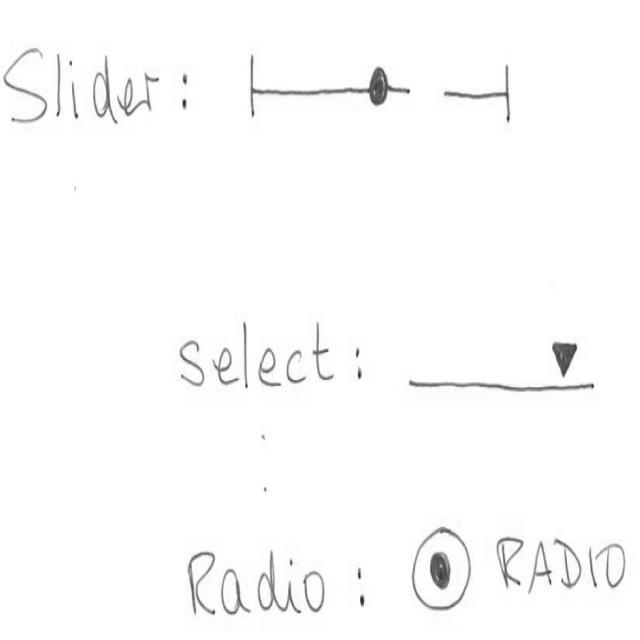 Slider:
Select:
Radio: RADIO